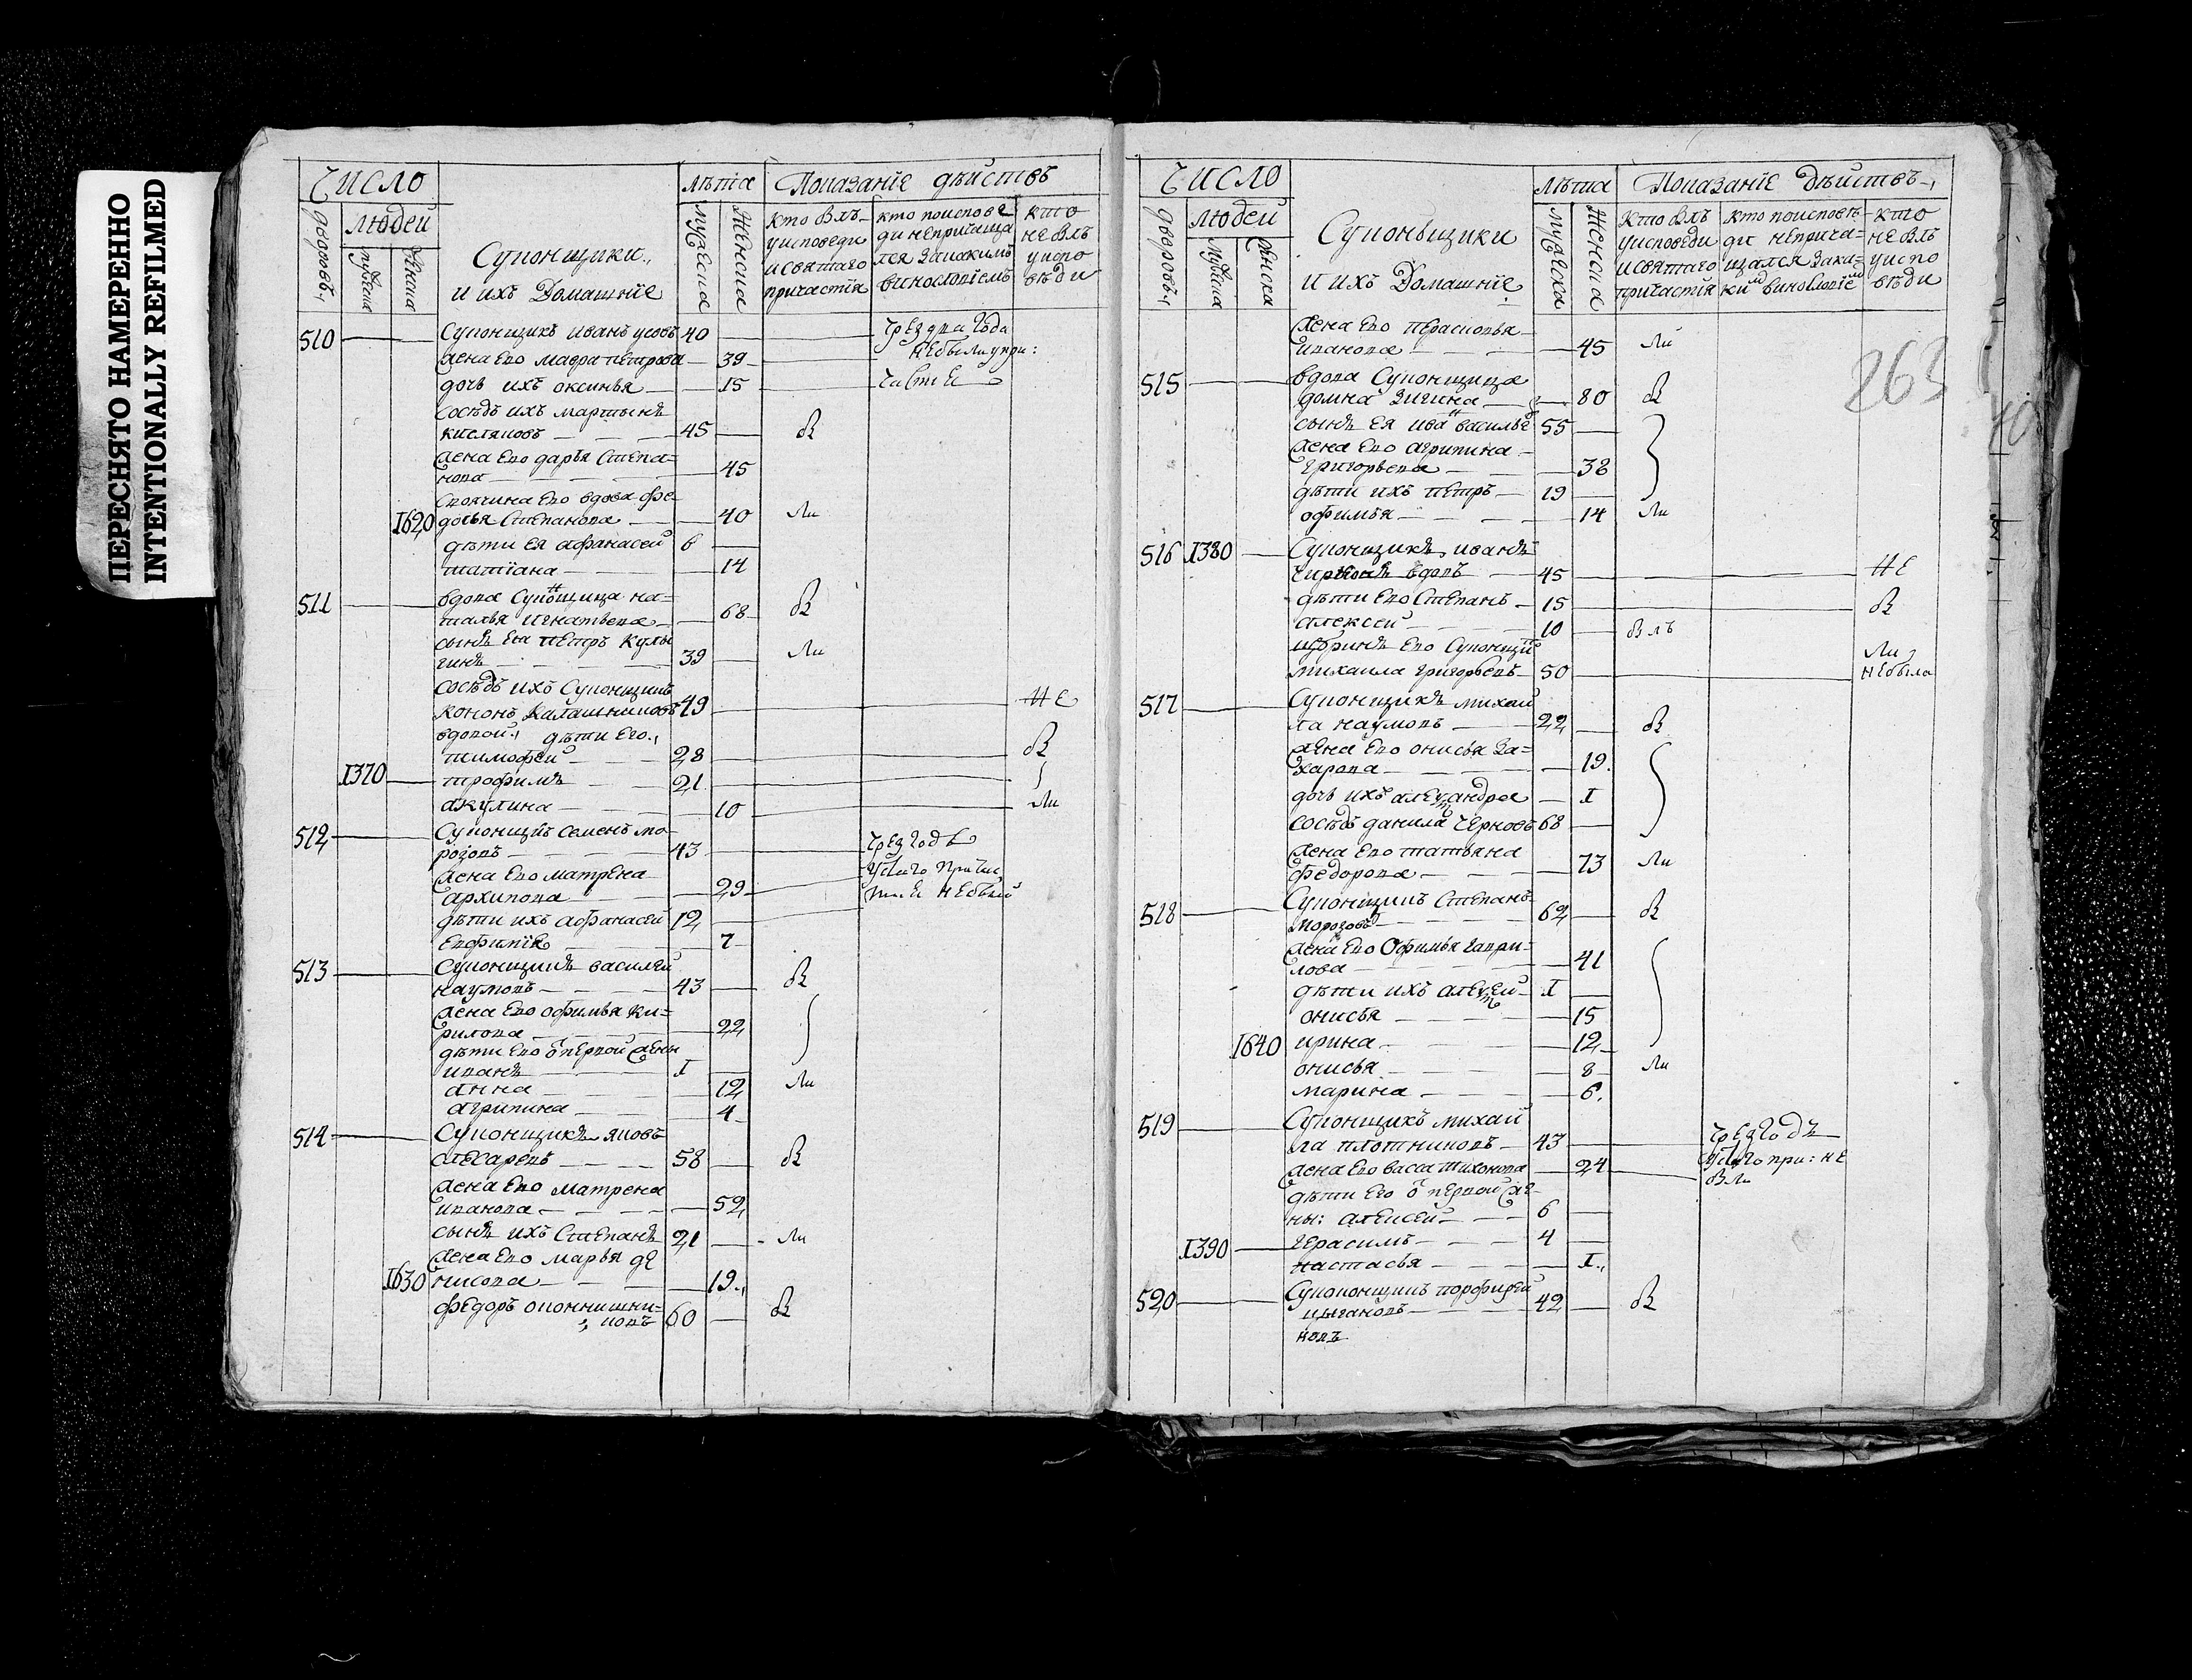 ПЕРЕСНЯТО НАМЕРЕННО
INTENTIONALLY REFILMED
Число
людей
дворовъ
мужеска
женска
Суконщики
и ихъ Домашнїе
лѣта
мужеска
женска
Показанїе дѣйствъ
кто былъ
у исповеди
и святаго
причастїя
кто по испове
ди не прича
лся за какимъ
винословїемъ
кто
не былъ
у испо
вѣди
510 Суконщикъ иванъ усовъ 40 чрез два года
жена его мавра петрова 39 не были у при:
дочь их оксинья 15 частїя
сосѣдъ ихъ мартынъ
кисляковъ 45 бы
жена его дарья степа=
нова 45
своячина его вдова фе
1620 досья степанова 40 ли
дѣти ея афанасей 6
татїана 14
511 вдова суконщица на=
талья игнатьева 68 бы
сынъ ея петръ кулы
гинъ 39 ли
сосѣдъ ихъ суконщикъ
кононъ калашниковъ 49 не
вдовой, дѣти его,
тимофей 28 бы
1370 трофимъ 21
акулина 10 ли
512 Суконщикъ семенъ мо
розовъ 43 чрез годъ
жена его матрена у свтаго прича
архипова 29 стїя не были
дѣти ихъ афанасей 12
евфимїя 7
513 Суконщикъ василей
наумовъ 43 бы
жена его офимья ки=
рилова 22
дѣти его от первой жены
иванъ 1
анна 12 ли
агрипина 4
514 Суконщикъ яковъ
слесаревъ 58 бы
жена его матрена
иванова 52
сынъ ихъ степанъ 21 ли
жена его марья де
1630 нисова 19
федоръ опоннишни=
ковъ 60 бы
Число
людей
дворовъ
мужеска
женска
Суконьщики
и ихъ Домашнїе
лѣта
мужеска
женска
Показанїе дѣйствъ
кто былъ
у исповеди
и святаго
причастїя
кто по исповѣ
ди не прича=
щался за ка=
кимъ винословїемъ
кто
не былъ
у испо
вѣди
263
жена его перасковья
иванова 45 ли
515 вдова суконщица
домна зигина 80 бы
сынъ ея иванъ васильев 55
жена его агрипина
григорьева 38
дѣти ихъ петръ 19
офимья 14 ли
516 1380 Суконщикъ иванъ
вдовъ 45 не
дѣти его степанъ 15 бы
алексей 10 былъ
шуринъ его суконщик ли
михаила григорьевъ 50 не была
517 Суконщикъ михай
ла наумовъ 22 бы
жена его онисья за=
харова 19
дочь ихъ александра 1
сосѣдъ данила черновъ 68
жена его татьяна
федорова 73 ли
518 Суконщикъ степанъ
морозовъ 62 бы
жена его Офимья гаври=
лова 41
дѣти ихъ алексей 1
онисья 15
1640 ирина 12
онисья 8 ли
марина 6
519 Суконщикъ михай
ла плотниковъ 43 чрез годъ
жена его васса тихонова 24 у свтаго при: не
дѣти его от первой же бли
ны: алексей 6
1390 герасимъ 4
настасья 1
520 Суконощикъ порфирей
цыгановъ 42 бы
ковъ